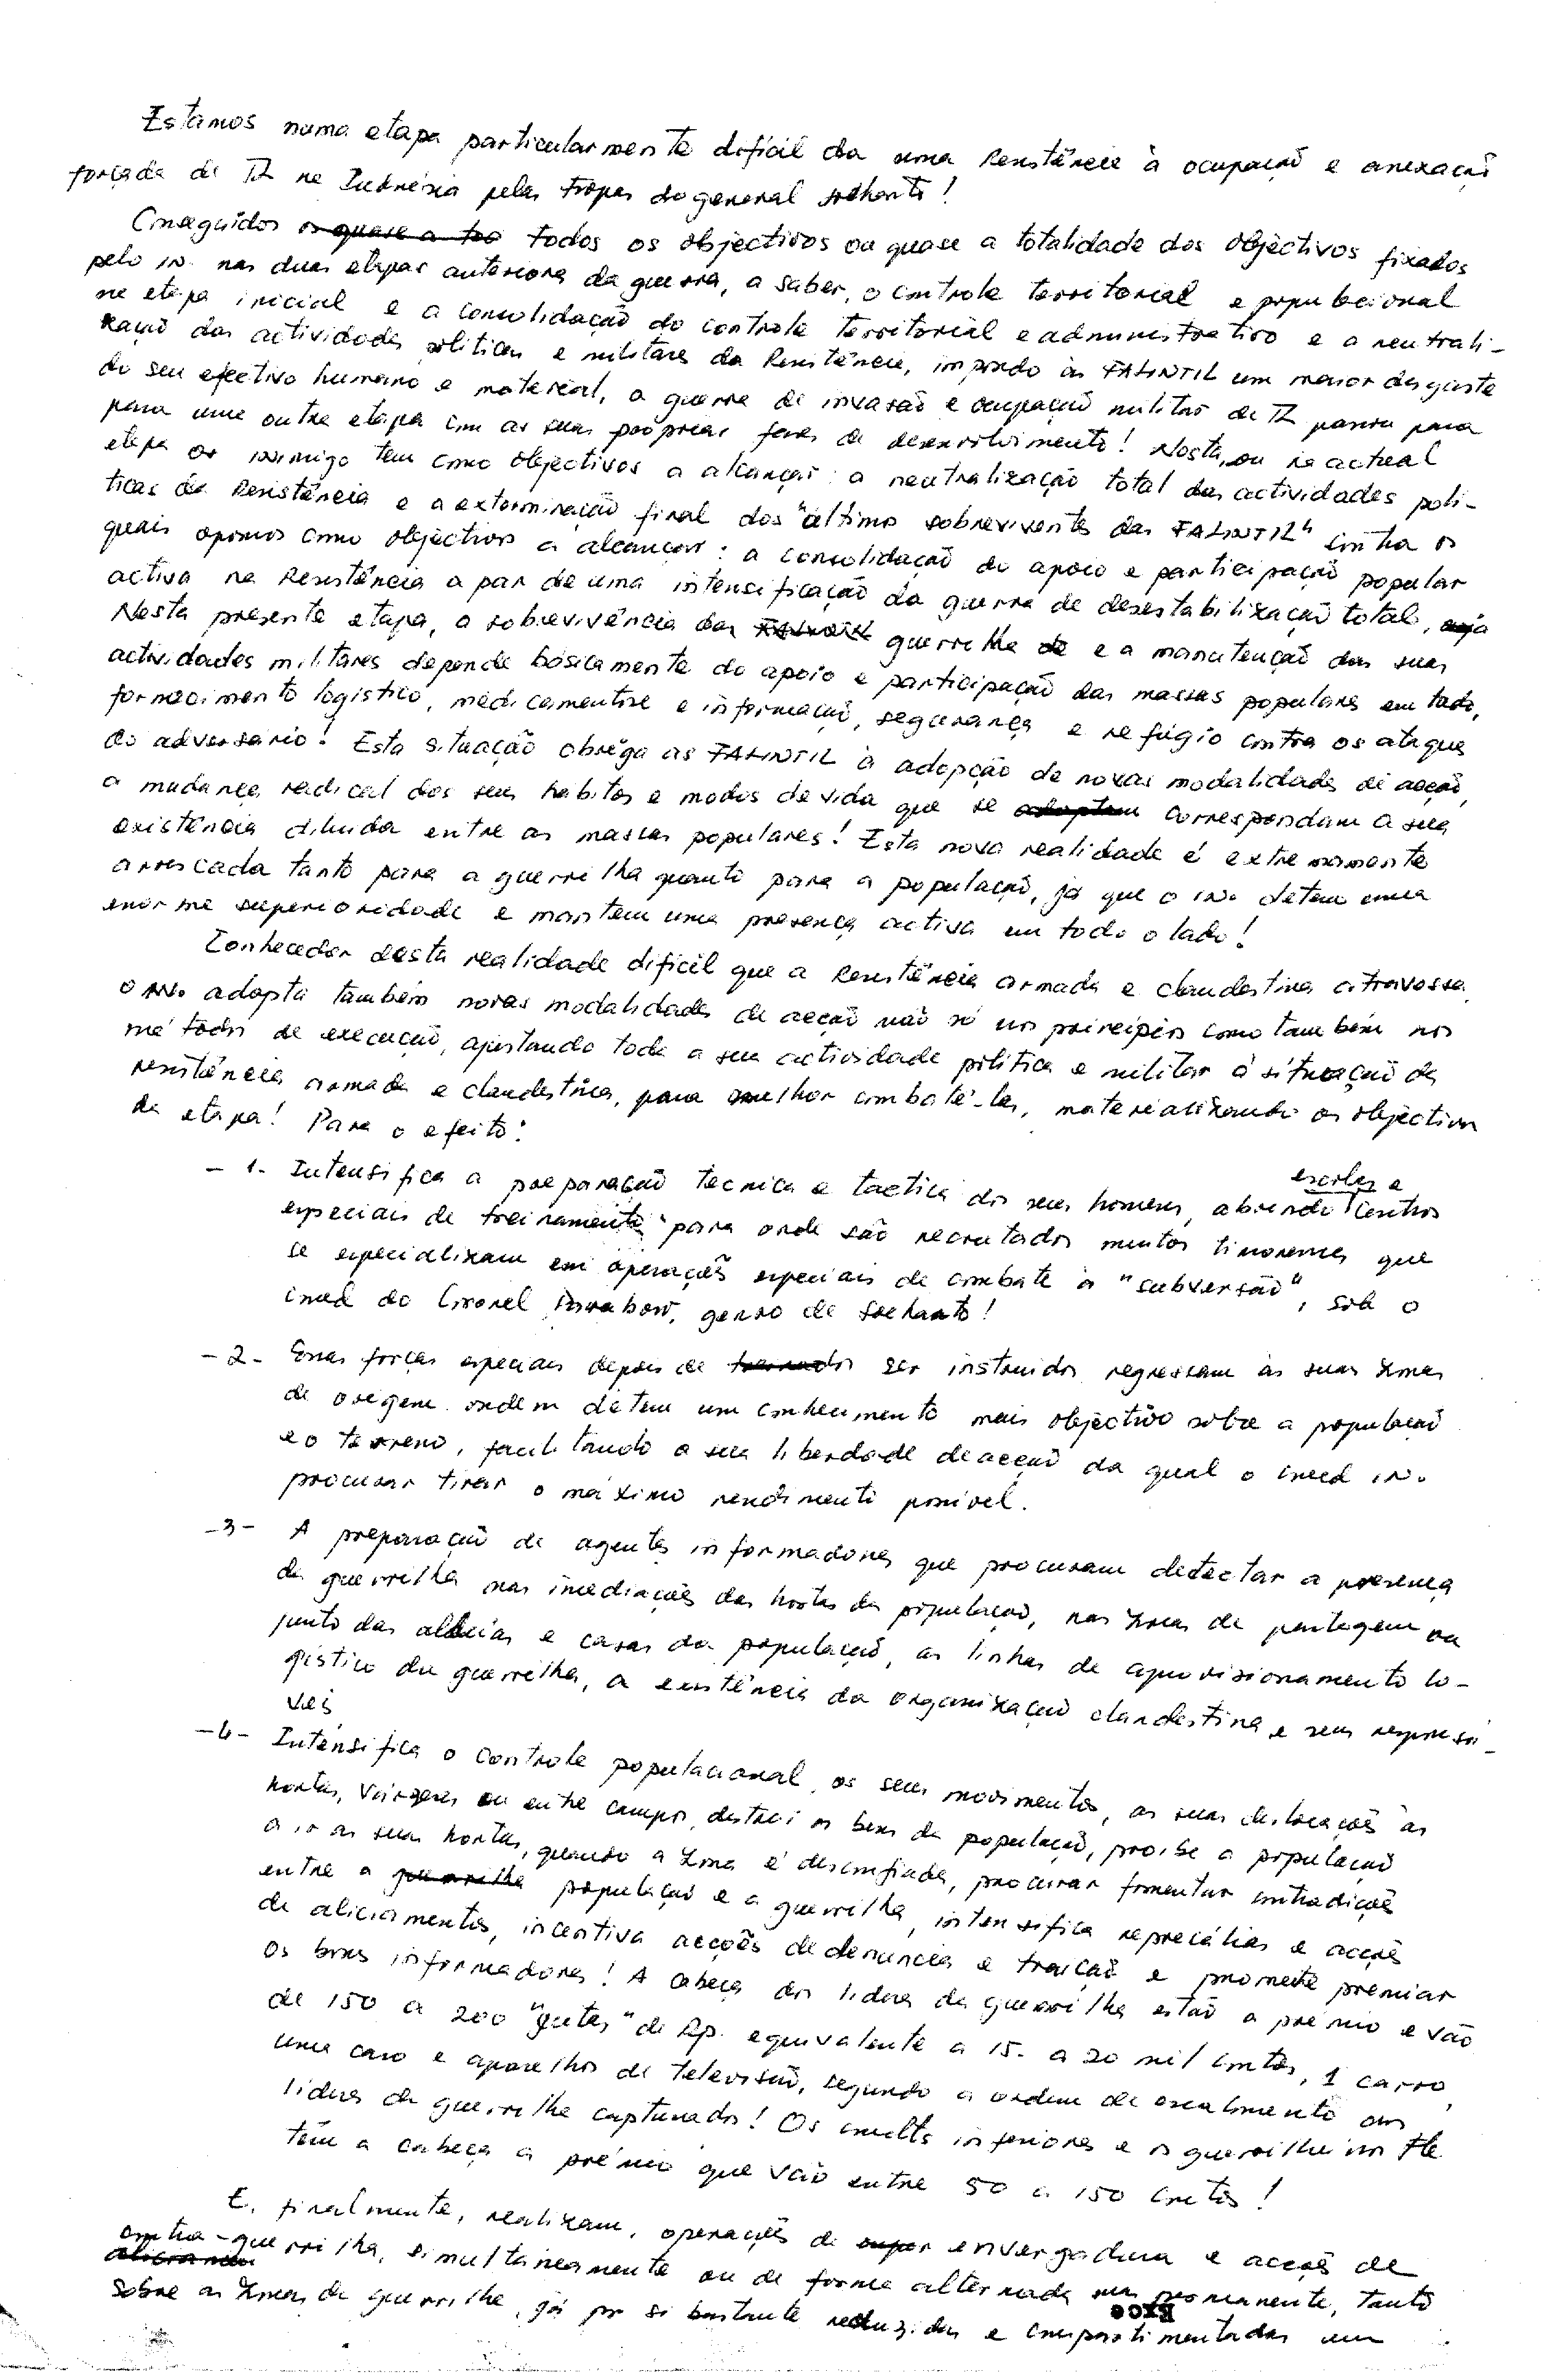 Estamos numa etapa particularmente difícil da nossa Resistência à ocupação e anexação
forçada de TL na Indonésia pelas tropas do general Suharto!
Conseguidos os quase a too todos os objectivos ou quase a totalidade dos objectivos fixados
pelo in. nas duas etapas anteriores da guerra, a saber, o controle territorial e populacional
na etapa inicial e a consolidação do controle territorial e administrativo e a neutrali-
zação das actividades políticas e militares da Resistência, impondo às FALINTIL um maior desgaste
do seu efectivo humano e material, a guerra de invasão e ocupação militar de TL passou para
para uma outra etapa com as suas próprias fases de desenvolvimento! Nesta, ou na actual
etapa os inimigo tem como objectivos a alcançar: a neutralização total das actividades polí-
ticas da Resistência e a exterminação final dos "últimos sobreviventes das FALINTIL" contra os
quais opomos como objectivos a alcançar: a consolidação do apoio e participação popular
activa na Resistência a par de uma intensificação da guerra de desestabilização total,
Nesta presente etapa, a sobrevivência das FALINTIL guerrilha de e a manutenção das suas
actividades militares depende bàsicamente do apoio e participação das massas populares em tudo,
fornecimento logístico, medicamentoso e informação, segurança e refúgio contra os ataques
do adversário! Esta situação obriga as FALINTIL à adopção de novas modalidades de acção,
a mudança radical dos seus hábitos e modos de vida que se adoptem correspondam a sua
existência diluida entre as massas populares! Esta nova realidade é extremamente
arriscada tanto para a guerrilha quanto para a população, já que o in. detem uma
enorme superioridade e mantem uma presença activa em todo o lado!
Conhecedor desta realidade difícil que a Resistência armada e clandestina atravessa,
o in. adopta também novas modalidades de acção não só nos princípios como também nos
métodos de execução, ajustando toda a sua actividade política e militar à situação da
resistência armada e clandestina, para melhor combatê-las, materializando os objectivos
da etapa! Para o efeito:
- 1. Intensifica a preparação técnica e táctica dos seus homens, abrindo escolas e centros
especiais de treinamento para onde são recrutados muitos timorenses que
se especializam em operações especiais de combate à "subversão", sob o
cmd do Coronel Prabowo, genro de Suharto!
- 2 - Essas forças especiais depois de treinados ser instruidos regressam às suas zonas
de origem ondem detem um conhecimento mais objectivo sobre a população
e o terreno, facilitando a sua liberdade de acção da qual o cmd in.
procurar tirar o máximo rendimento possível.
- 3 - A preparação de agentes informadores que procuram detectar a presença
da guerrilha nas imediações das hortas da população, nas zonas de pastagem ou
junto das aldeias e casas da população, as linhas de aprovisionamento lo-
gístico da guerrilha, a existência da organização clandestina e seus responsá-
veis
- 4 - Intensifica o controle populacional, os seus movimentos, as suas deslocações às
hortas, várzeas ou entre campos, destroi os bens da população, proibe a população
a ir às suas hortas, quando a zona é desconfiada, procurar fomentar contradições
entre a guerrilha população e a guerrilha, intensifica represálias e acções
de aliciamentos, incentiva acções de denúncia e traição e promete premiar
os bons informadores! A cabeça dos lideres da guerrilha estão a prémio e vão
de 150 a 200 "jutas" de Rp. equivalente a 15. a 20 mil contos, 1 carro,
uma casa e aparelhos de televisão, segundo a ordem de escalonamento dos
lideres da guerrilha capturados! Os inferiores e os guerrilheiros
têm a cabeça a prémio que vão entre 50 a 150 contos!
E, finalmente, realizam, operações de super envergadura e acções de
contra-guerrilha, simultâneamente ou de forma alternada permanente, tanto
sobre as zonas da guerrilha, já por si bastante reduzidas e compartimentadas em